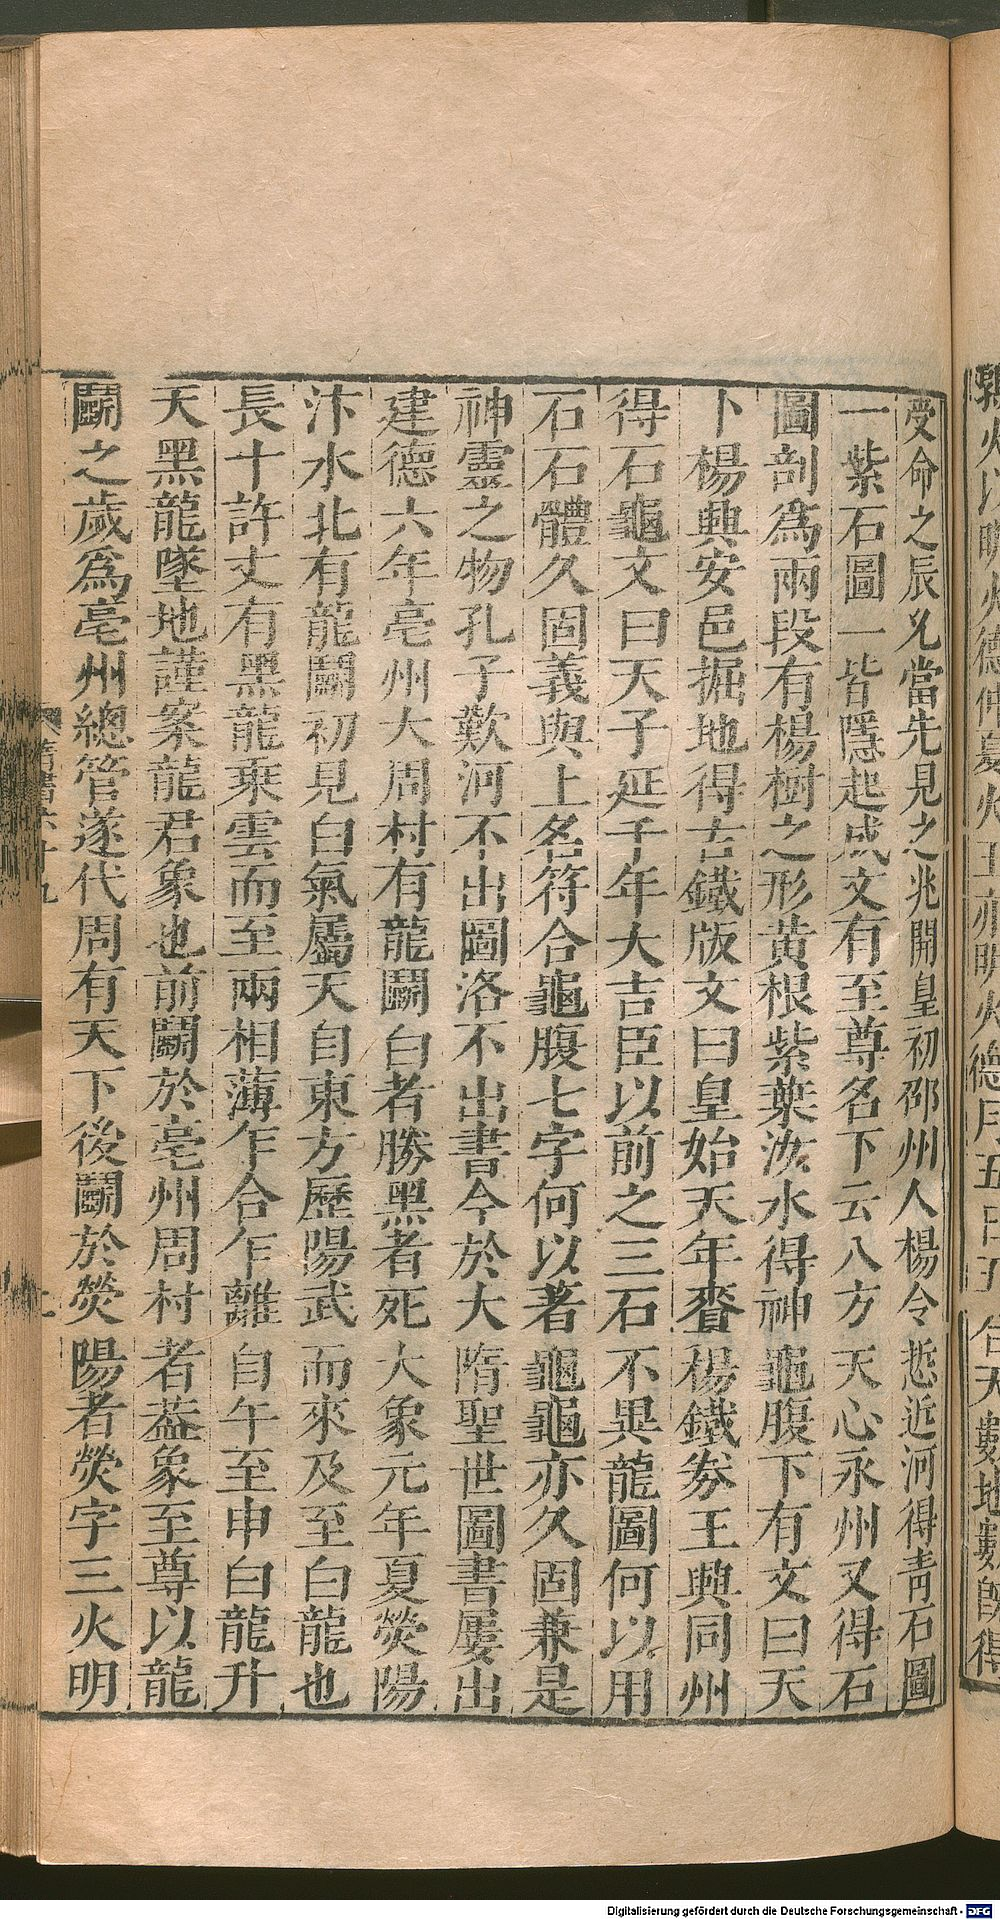 受命之辰允當先見之兆開皇初邵州人楊令悊近河得青石圖
一紫石圖一皆隱起成文有至尊名下云八方天心永州又得石
圖剖爲兩段有楊樹之形黄根紫葉汝水得神龜腹下有文曰天
卜楊興安邑掘地得古鐵版文曰皇始天年賚楊鐵券王興同州
得石龜文曰天子延千年大吉臣以前之三石不異龍圖何以用
石石體久固義與上名符合龜腹七字何以著龜龜亦久固兼是
神靈之物孔子歎河不出圖洛不出書今於大隋聖世圖書屢出
建德六年亳州大周村有龍鬭白者勝黑者死大象元年夏熒陽
汴水北有龍鬭初見白氣屬天自東方歷陽武而來及至白龍也
長十許丈有黑龍乘雲而至兩相薄乍合乍離自午至申白龍升
天黑龍墜地謹案龍君象也前鬭於亳州周村者葢象至尊以龍
鬭之歲爲亳州總管遂代周有天下後鬭於熒陽者熒字三火明
隋書六十九
Digitalisierung gefördert durch die Deutsche Forschungsgemeinschaft - DFG